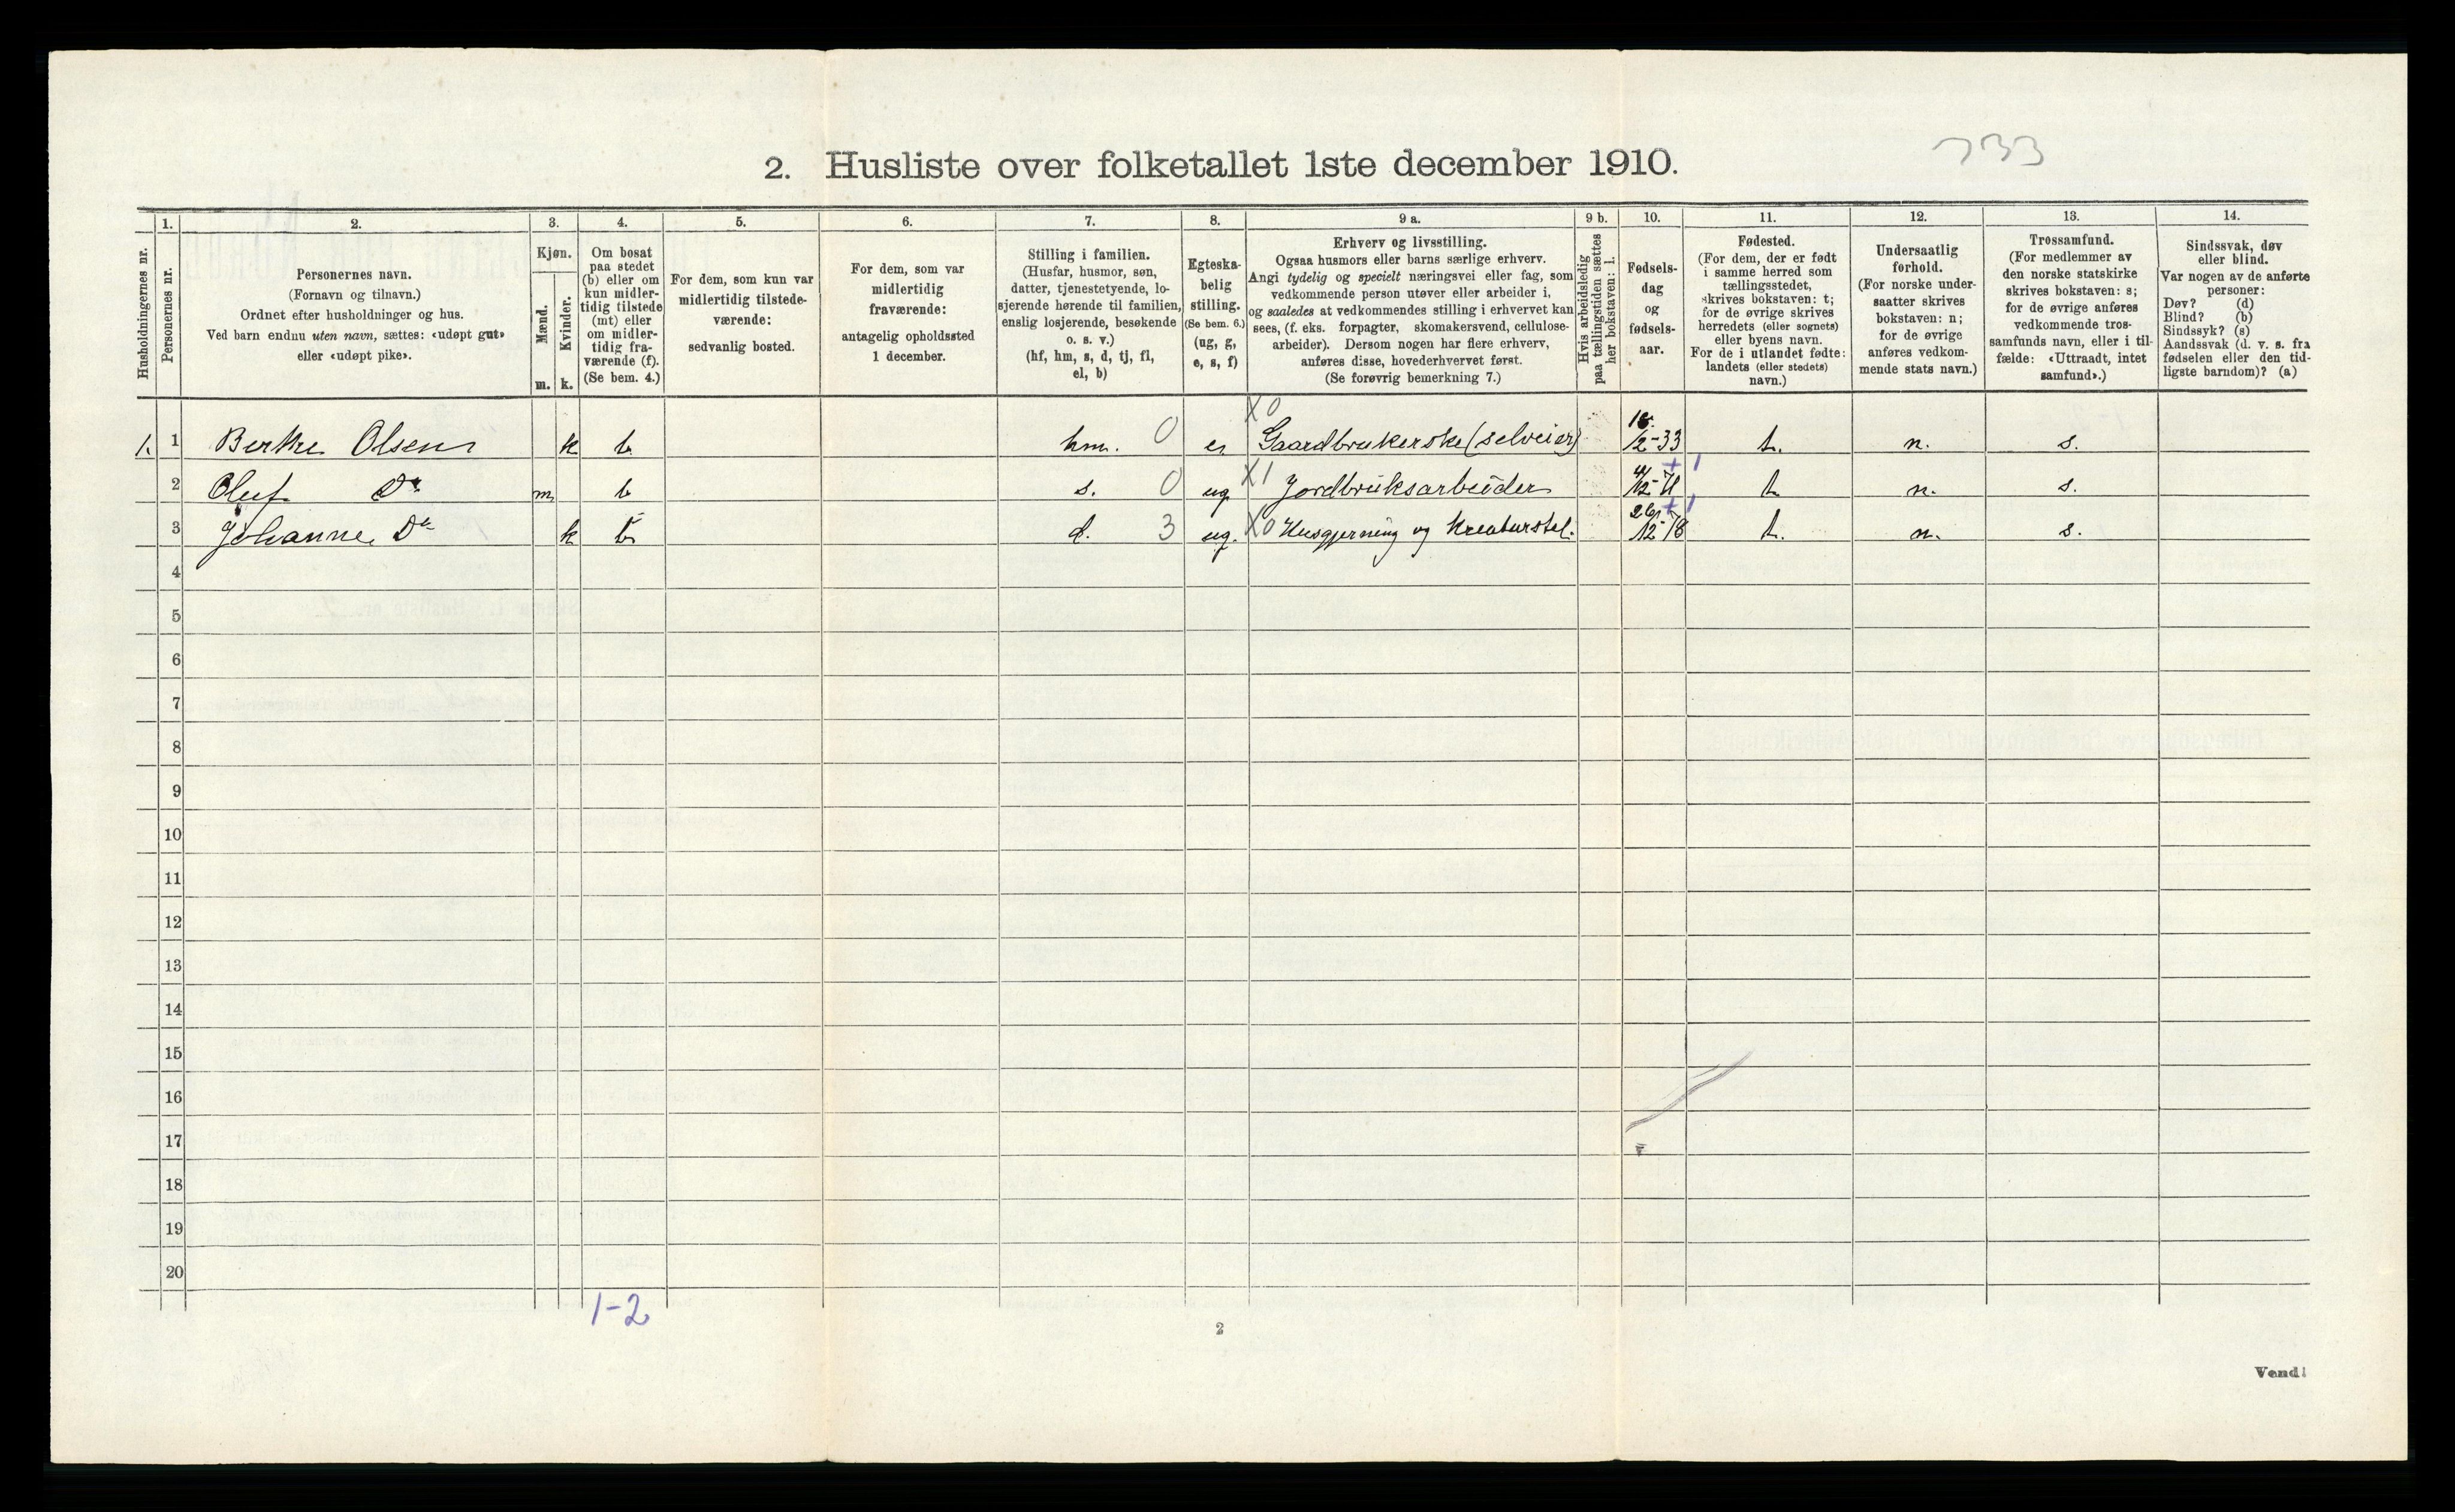 733
2. Husliste over folketallet 1ste december 1910.
Husholdningernes nr.
1.
Personernes nr.
2.
Personernes navn.
(Fornavn og tilnavn.)
Ordnet efter husholdninger og hus.
Ved barn endnu uten navn, sættes: «udøpt gut»
eller «udøpt pike».
3.
Kjøn.
Mænd.
Kvinder.
m. k.
4.
Om bosat
paa stedet
(b) eller om
kun midler-
tidig tilstede
(mt) eller
om midler-
tidig fra-
værende (f).
(Se bem. 4.)
5.
For dem, som kun var
midlertidig tilstede-
værende:
sedvanlig bosted.
6.
For dem, som var
midlertidig
fraværende:
antagelig opholdssted
1 december.
7.
Stilling i familien.
(Husfar, husmor, søn,
datter, tjenestetyende, lo-
sjerende hørende til familien,
enslig losjerende, besøkende
o. s. v.)
(hf, hm, s, d, tj, fl,
el, b)
8.
Egteska-
belig
stilling.
(Se bem. 6.)
(ug, g,
e, s, f)
9 a.
Erhverv og livsstilling.
Ogsaa husmors eller barns særlige erhverv.
Angi tydelig og specielt næringsvei eller fag, som
vedkommende person utøver eller arbeider i,
og saaledes at vedkommendes stilling i erhvervet kan
sees, (f. eks. forpagter, skomakersvend, cellulose-
arbeider). Dersom nogen har flere erhverv,
anføres disse, hovederhvervet først.
(Se forøvrig bemerkning 7.)
9 b.
Hvis arbeidsledig
paa tællingstiden sættes
her bokstaven: l.
10.
Fødsels-
dag
og
fødsels-
aar.
11.
Fødested.
(For dem, der er født
i samme herred som
tællingsstedet,
skrives bokstaven: t;
for de øvrige skrives
herredets (eller sognets)
eller byens navn.
For de i utlandet fødte:
landets (eller stedets)
navn.)
12.
Undersaatlig
forhold.
(For norske under-
saatter skrives
bokstaven: n;
for de øvrige
anføres vedkom-
mende stats navn.)
13.
Trossamfund.
(For medlemmer av
den norske statskirke
skrives bokstaven: s;
for de øvrige anføres
vedkommende tros-
samfunds navn, eller i til-
fælde: «Uttraadt, intet
samfund».)
14.
Sindssvak, døv
eller blind.
Var nogen av de anførte
personer:
Døv? (d)
Blind? (b)
Sindssyk? (s)
Aandssvak (d. v. s. fra
fødselen eller den tid-
ligste barndom)? (a)
1. 1 Berthe Olsen k b hm. 0 e X0 Gaardbrukerske (selveier) 18/2-33 t. n. s.
2 Oluf Do m b s. 0 ug X1 Jordbruksarbeider 4/12-71 t. n. s.
3 Johanne Do k b d. 3 ug. X0 Husgjerning og Kreaturstel. 26/12-78 t. n. s.
4
5
6
7
8
9
10
11
12
13
14
15
16
17
18
19
20
1-2
2
Vend!